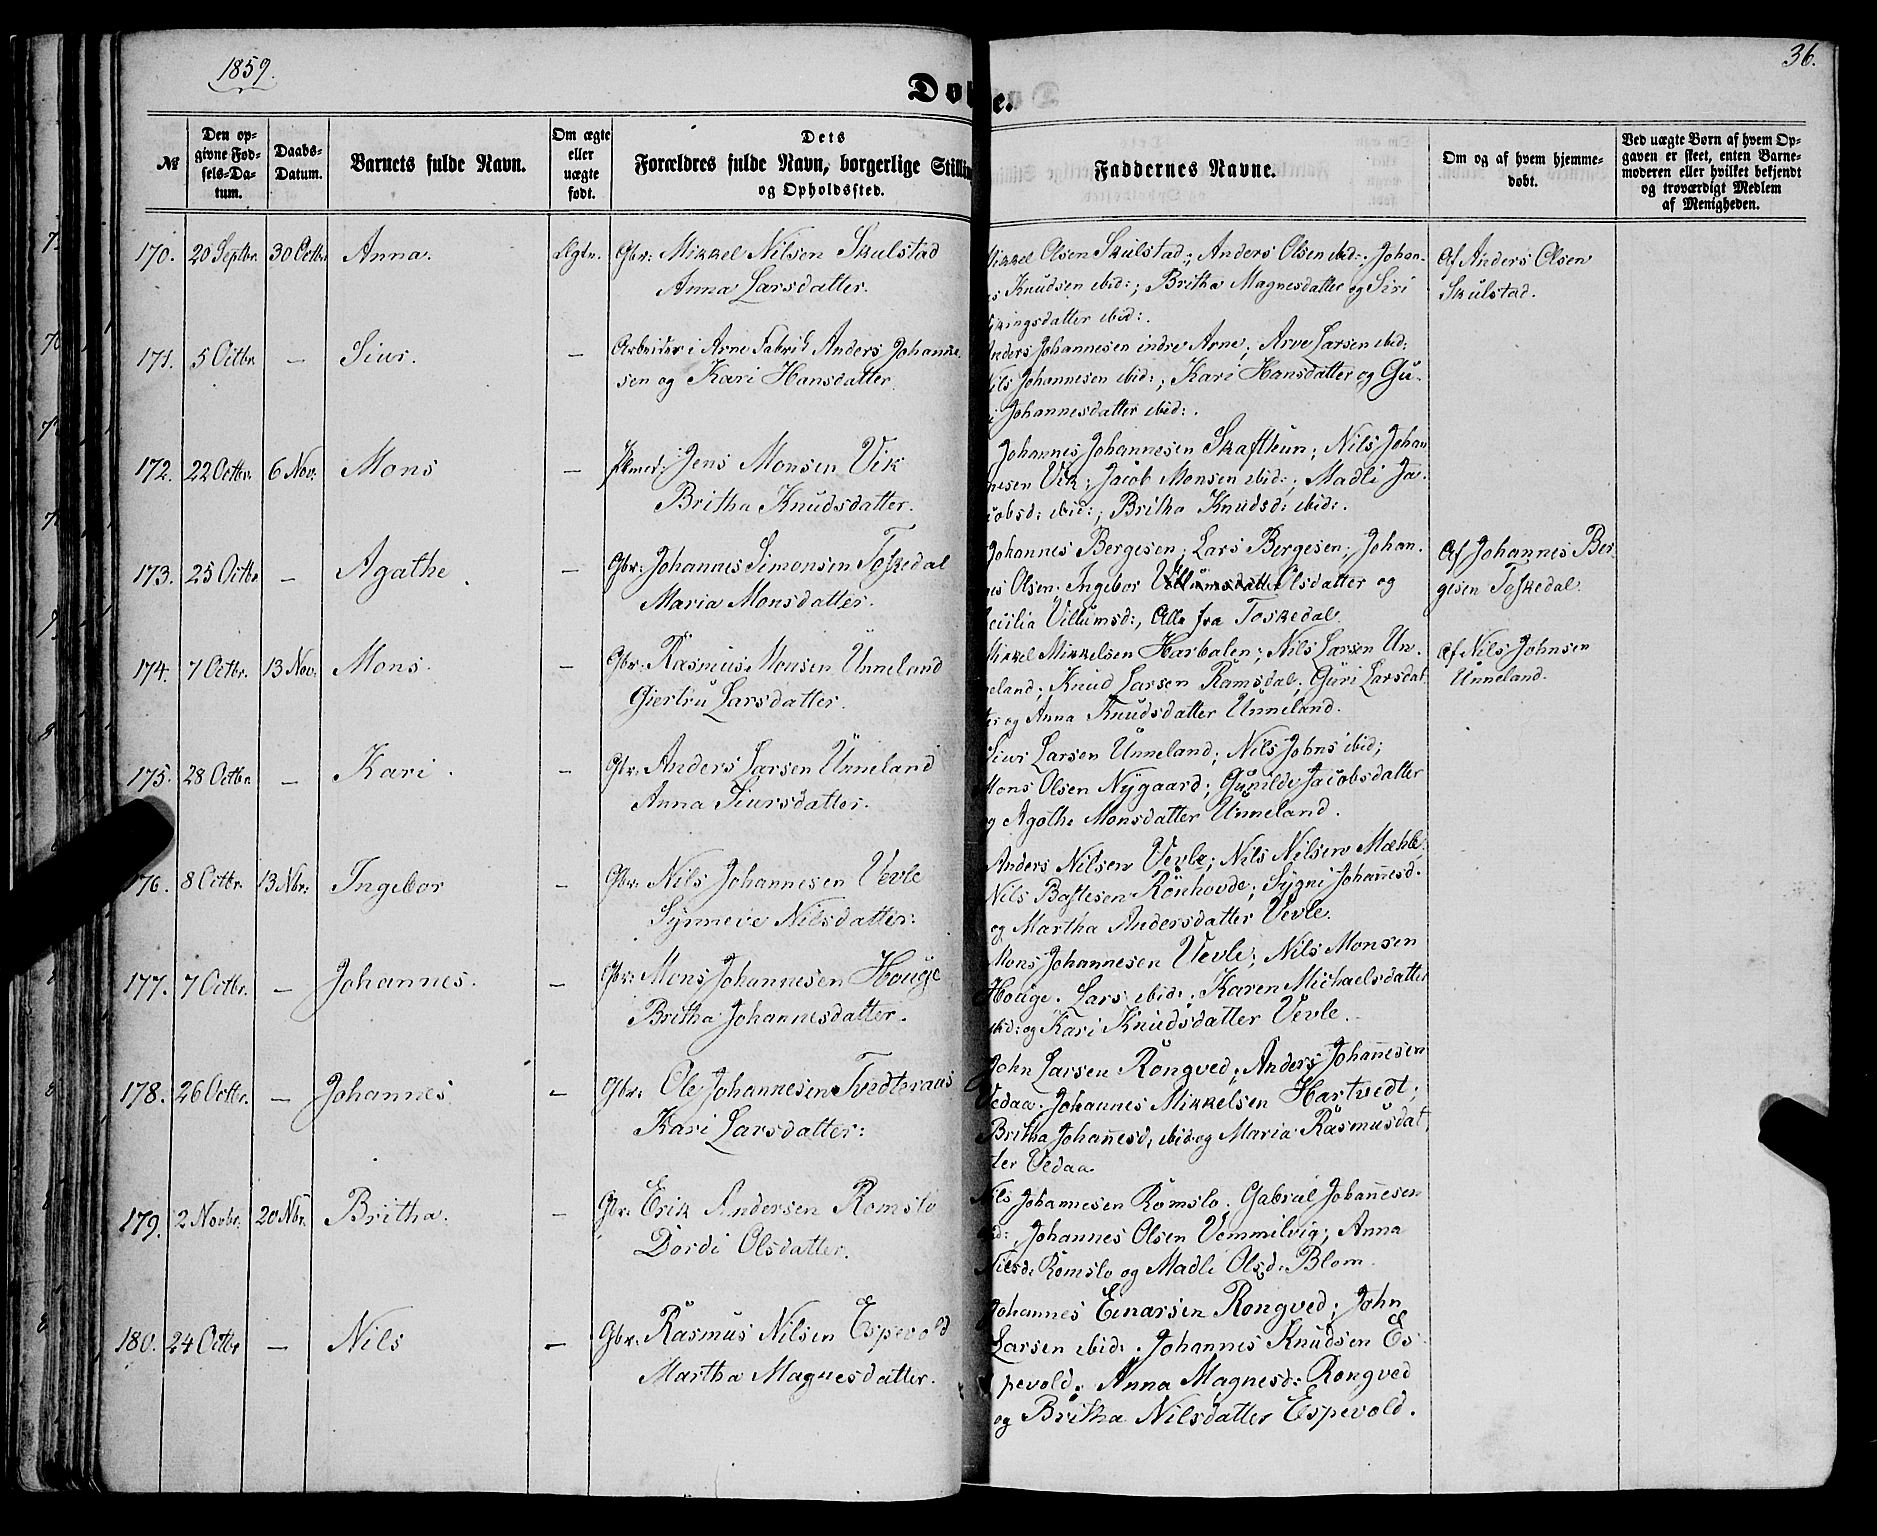 1859.
36.
Døbte.
№
Den opgivne Fødsels-Datum.
Daabs-Datum.
Barnets fulde Navn.
Om ægte eller uægte født.
Dets Forældres fulde Navn, borgerlige Stilling og Opholdssted.
Faddernes Navne.
Om og af hvem hjemmedøbt.
Ved uægte Børn af hvem Opgaven er skeet, enten Barnemoderen eller hvilket bekjendt og troværdigt Medlem af Menigheden.
170. 20 Septbr. 30 Octbr Anna. Ægte. Gbr: Mikkel Nilsen Skulstad
Anna Larsdatter.
Mikkel Olsen Skulstad; Anders Olsen ibid:; Johan-
es Knudsen ibid:; Britha Magnesdatter og Siri
Vikingsdatter ibid:.
Af Anders Olsen
Skulstad.
171. 5 Octbr. — Siur. — Arbeider i Arne Fabrik Anders Johanne-
sen og Kari Hansdatter.
Anders Johannesen indre Arne; Arve Larsen ibid:
Nils Johannesen ibid:; Kari Hansdatter og Gu-
i Johannesdatter ibid:.
172. 22 Octbr. 6 Nov: Mons — Jens Monsen Vik
Britha Knudsdatter.
Johannes Johannesen Skafthun; Nils Johan
nesen Vik; Jacob Monsen ibid:; Madli Ja-
cobsd: ibid:; Britha Knudsd: ibid:.
173. 25 Octbr — Agathe. — Gbr: Johannes Simonsen Toskedal
Maria Monsdatter.
Johannes Bergesen; Lars Bergesen; Johan-
nes Olsen; Ingebor Olsdatter og
Cecilia Villumsd:, Alle fra Toskedal.
Af Johannes Ber
gesen Toskedal.
174. 7 Octbr. 13 Nov: Mons. — Gbr: Rasmus Monsen Unneland
Giertru Larsdatter.
Mikkel Mikkelsen Harbalen; Nils Larsen Un-
neland; Knud Larsen Ramsdal; Guri Larsdat
ter og Anna Knudsdatter Unneland.
Af Nils Johnsen
Unneland.
175. 28 Octbr — Kari. — Gbr: Anders Larsen Unneland
Anna Siursdatter.
Siur Larsen Unneland; Nils Johns ibid;
Mons Olsen Nygaard; Gunilde Jacobsdatter
og Agathe Monsdatter Unneland.
176. 8 Octbr. 13 Nbr: Ingebor — Gbr: Nils Johannesen Vevle
Synneve Nilsdatter.
Anders Nilsen Vevle; Nils Nilsen Mæhle,
Nils Bastesen Rönhovde; Sygni Johannesd.
og Martha Andersdatter Vevle.
177. 7 Octbr. — Johannes. — Gbr: Mons Johannesen Houge
Britha Johannesdatter.
Mons Johannesen Vevle; Nils Monsen
Houge. Lars ibid:; Karen Michaelsdatter
ibid: og Kari Knudsdatter Vevle.
178. 26 Octbr. — Johannes. — Gbr: Ole Johannesen Tvedteraas
Kari Larsdatter:
John Larsen Rongved; Anders Johannesen
Vedaa. Johannes Mikkelsen Hartvedt;
Britha Johannesd, ibid og Maria Rasmusdat
ter Vedaa.
179. 2 Novbr. 20 Nbr. Britha. — Gbr: Erik Andersen Romslo
Dordi Olsdatter.
Nils Johannesen Romslo. Gabriel Johannesen
ibid:; Johannes Olsen Vemmelvig; Anna
Nilsd: Romslo og Madli Olsd: Blom.
180. 24 Octbr — Nils — Gbr: Rasmus Nilsen Espevold
Martha Magnesdatter.
Johannes Einarsen Rongved; John
Larsen ibid:. Johannes Knudsen Es-
pevold; Anna Magnesd: Rongved
og Britha Nilsdatter Espevold.